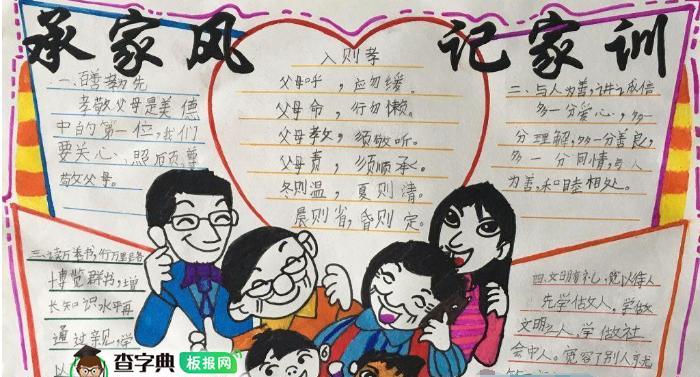 承家风 记家训
一、百善孝为先
孝敬父母是美德
中的第一位，我们
要关心、照顾尊
敬父母。
入则孝
父母呼，应勿缓。
父母命，行勿懒。
父母教，须敬听。
父母责，须顺承。
冬则温，夏则清。
晨则省，昏则定。
二、与人为善，讲诚信
多一分爱心，多一
分理解，多一分善良，
多一分同情，与人
为善，和睦相处。
三、读万卷书，行万里路
博览群书，增
长知识水平再
通过亲见，学
以
四、文明有礼，宽以待人
先学做人，学做
文明之人，学做社
会中人。宽容了别人就
查字典 板报网